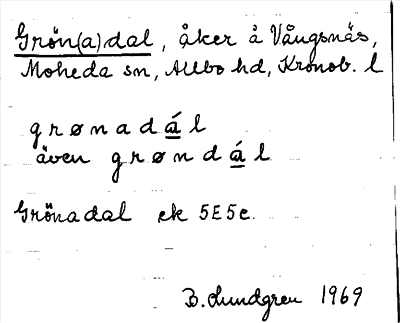 Grön(a)dal, åker å Vångsnäs,
Moheda sn, Allbo hd, Kronob. l
grønadá̲l
även grøndá̲l
Grönadal ek 5E5e.
B. Lundgren 1969